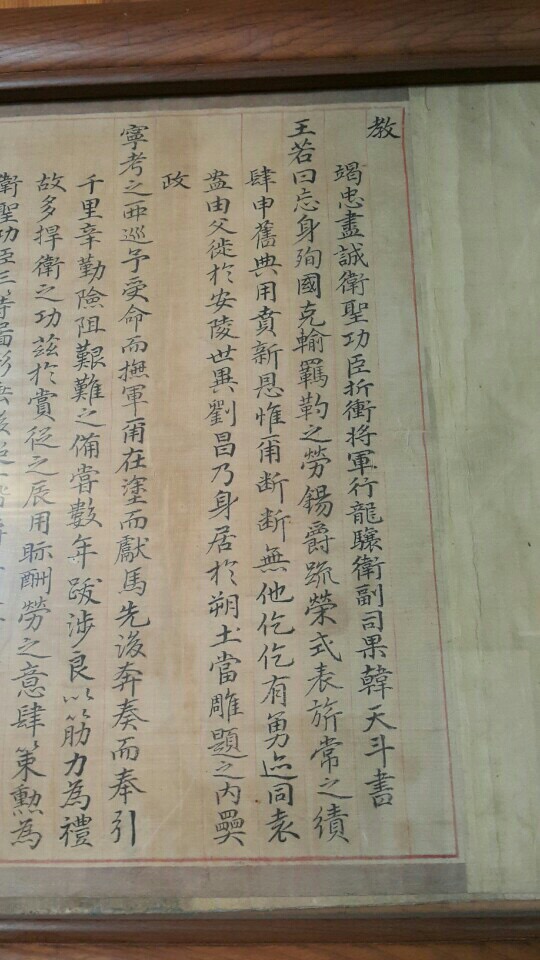 教
竭忠盡誠衛聖功臣折衝將軍行龍驤衛副司果韓天斗書
王若曰忘身殉國克輸羈靮之勞錫爵疏榮式表旂常之績
肆申舊典用賁新恩惟爾斷斷無他仡仡有勇迹同袁
盎由父徙於安陵世異劉昌乃身居於朔土當雕題之內釁
政
寧考之西巡予受命而撫軍爾在塗而獻馬先後奔奏而奉引
千里辛勤險阻艱難之備嘗數年跋涉良以筋力為禮
故多捍衛之功茲於賞從之辰用眎酬勞之意肆策勳為
衛聖功臣三等圖形